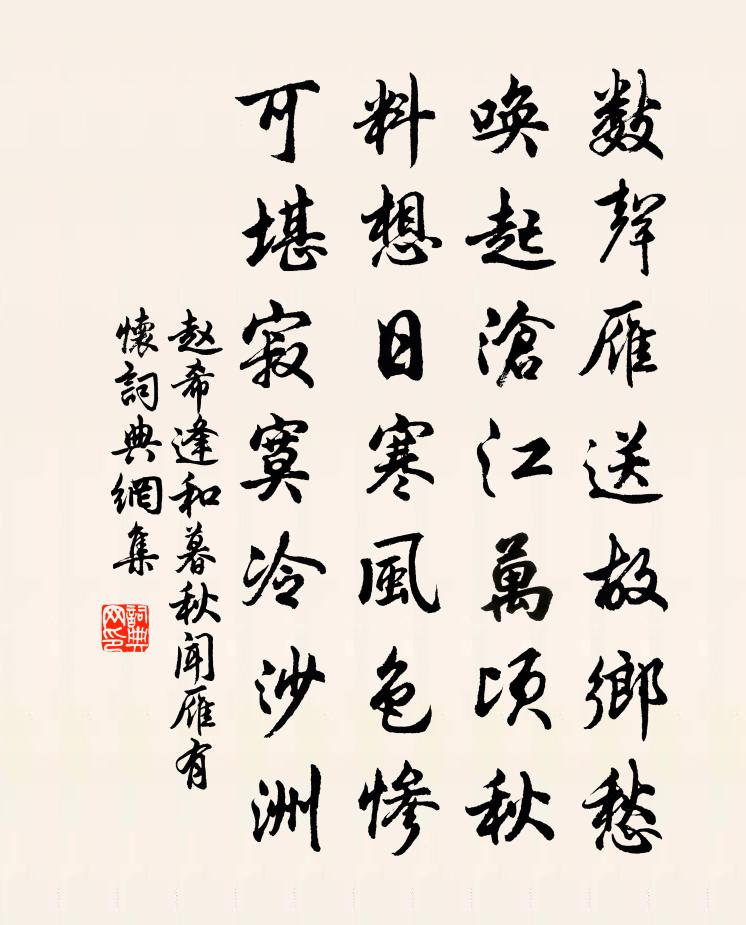 數聲雁送故鄉愁
喚起滄江萬頃秋
料想日寒風色慘
可堪寂寞冷沙洲
赵希逢和暮秋闻雁有
懷詞典網集
詞典
网印